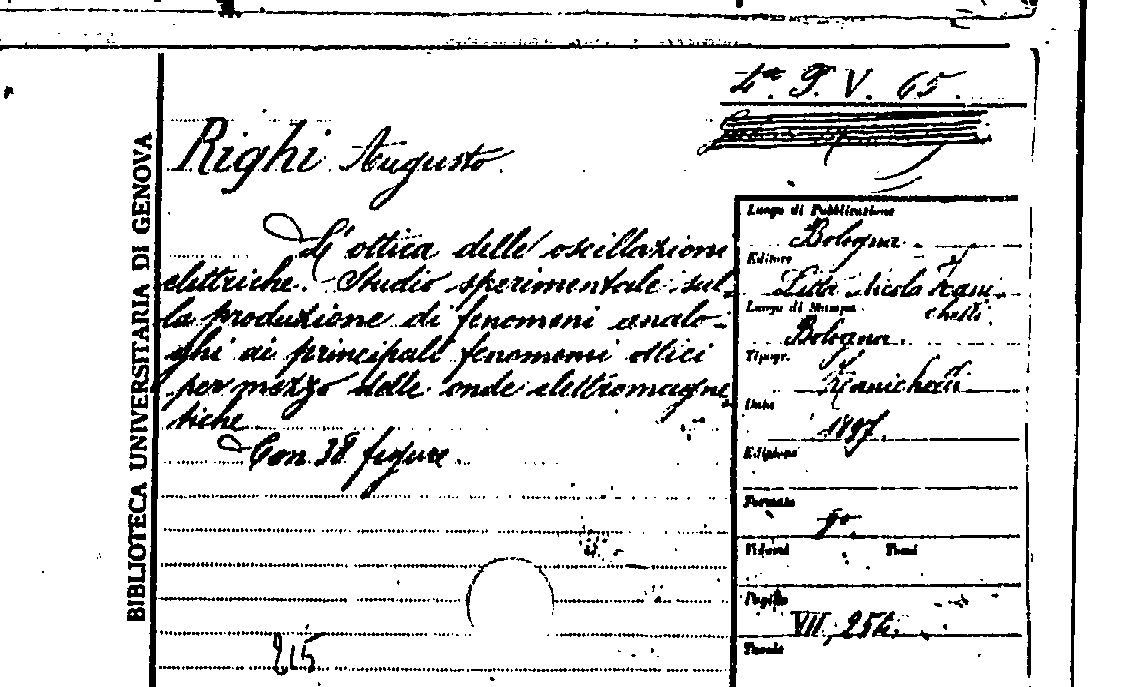 4ª. T. V. 65.
Righi Augusto.
L'ottica delle oscillazione
elettriche. Studio sperimentale sul-
la produzione di fenomeni analo-
ghi ai principali fenomeni ottici
per mezzo delle onde elettromagne
tiche
Con 38 figure.
215
BIBLIOTECA UNIVERSITARIA DI GENOVA
Luogo di Pubblicazione
Bologna.
Editore
Ditta Nicola Zani-
chelli.
Luogo di Stampa
Bologna.
Tipogr.
Zanichelli
Data
1897.
Edizione
Formato
8º.
Volumi Tomi
Pagine
VII, 254.
Tavole